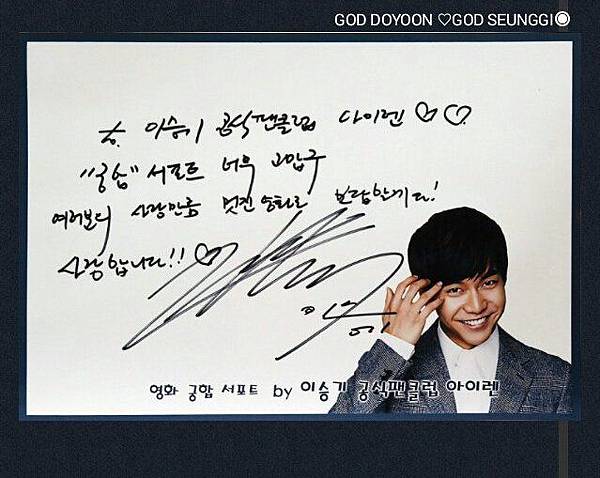 GOD DOYOON ♡GOD SEUNGGI◉
to. 이승기 공식팬클럽 아이렌 ♡♡.
"궁합" 서포트 너무 고맙구
여러분의 사랑만큼 멋진 영화로 보답할게요!
사랑합니다!! ♡
영화 궁합 서포트 by 이승기 공식팬클럽 아이렌